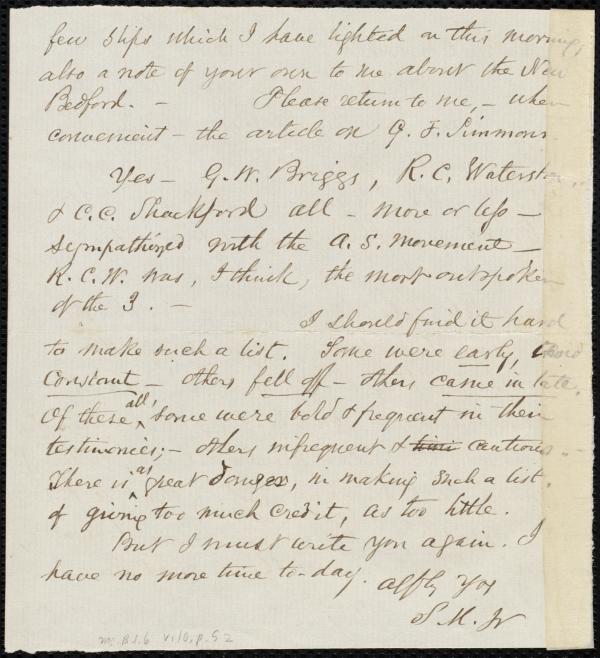 few slips which I have lighted on this morning,
also a note of your own to me about the New
Bedford. — Please return to me, — when
convenient — the article on G. F. Simmons.
Yes — G. W. Briggs, R. C. Waterston,
& C. C. Shackford all — more or less —
sympathized with the A. S. movement —
R. C. W. was, I think, the most outspoken
of the 3. —
I should find it hard
to make such a list. Some were early, &
constant — others fell off — others came in late.
Of these all, some were bold & frequent in their
testimonies; — others infrequent & timi cautious. —
There is as great danger, in making such a list,
of giving too much credit, as too little.
But I must write you again. I
have no more time to-day.
affly yrs
S. M. Jr
Ms. B.1.6 v.10, p. 52